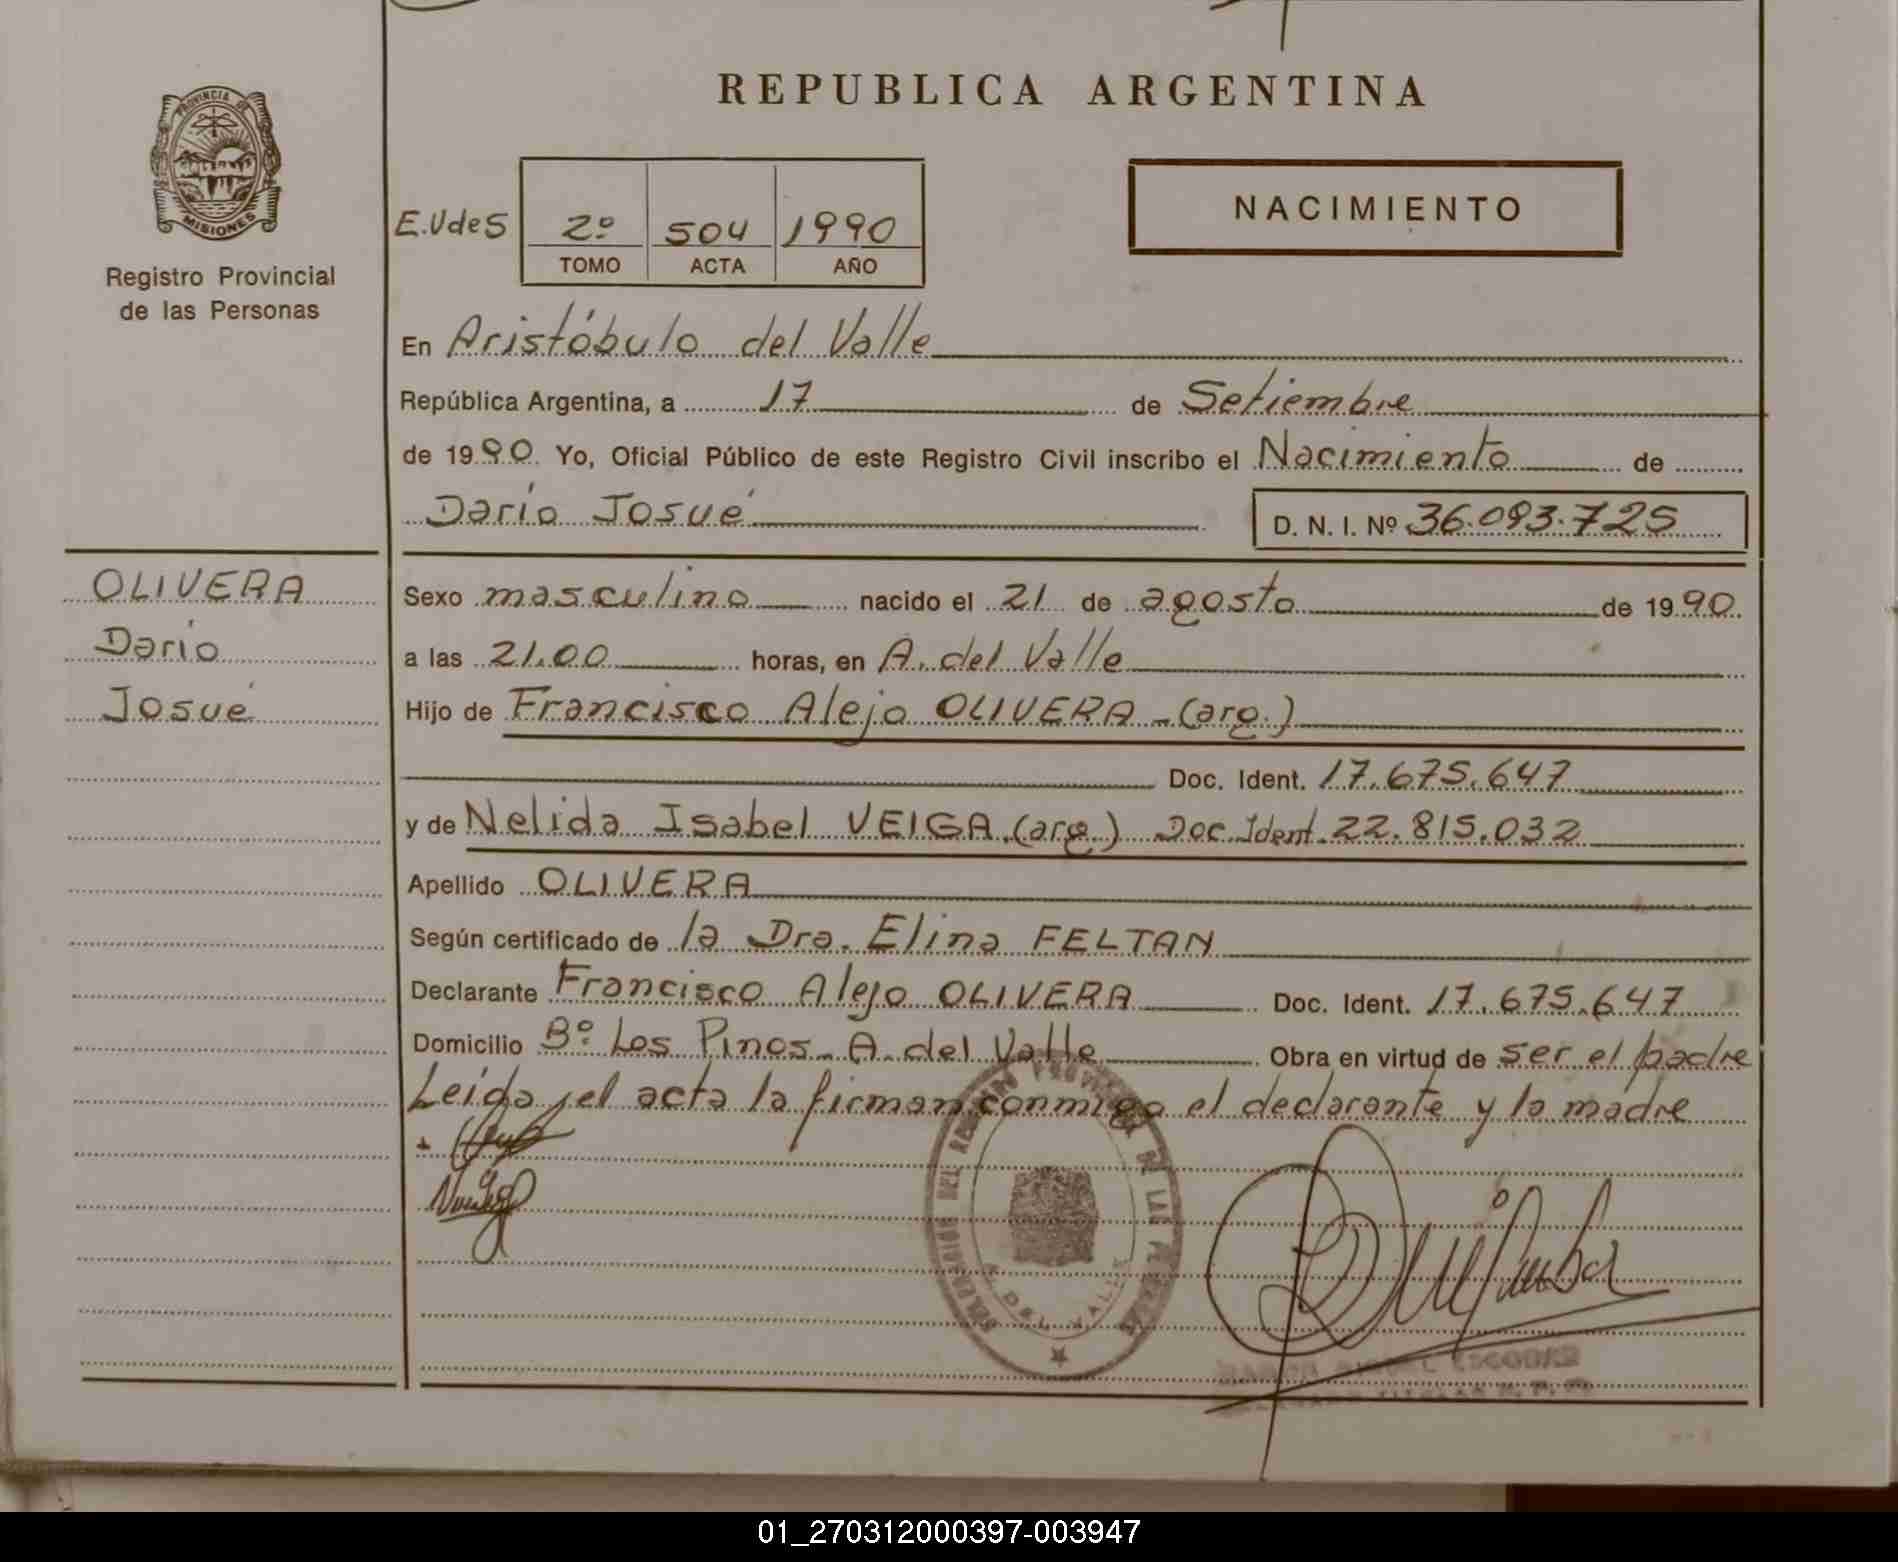 REPUBLICA ARGENTINA
PROVINCIA DE
MISIONES
Registro Provincial
de las Personas
E.UdeS
2º 504 1990
TOMO ACTA AÑO
NACIMIENTO
En Aristóbulo del Valle
República Argentina, a 17 de Setiembre
de 1990. Yo, Oficial Público de este Registro Civil inscribo el Nacimiento de
Darío Josué D. N. I. Nº 36.093.725
OLIVERA
Darío
Josué
Sexo masculino nacido el 21 de agosto de 1990.
a las 21.00 horas, en A. del Valle
Hijo de Francisco Alejo OLIVERA - (arg.)
Doc. Ident. 17.675.647
y de Nelida Isabel VEIGA (arg.) Doc. Ident. 22.815.032
Apellido OLIVERA
Según certificado de la Dra. Elina FELTAN
Declarante Francisco Alejo OLIVERA Doc. Ident. 17.675.647
Domicilio Bº Los Pinos - A. del Valle Obra en virtud de ser el padre
Leida el acta la firman conmigo el declarante y la madre
DEL VALLE
ESCOBAR
01_270312000397-003947